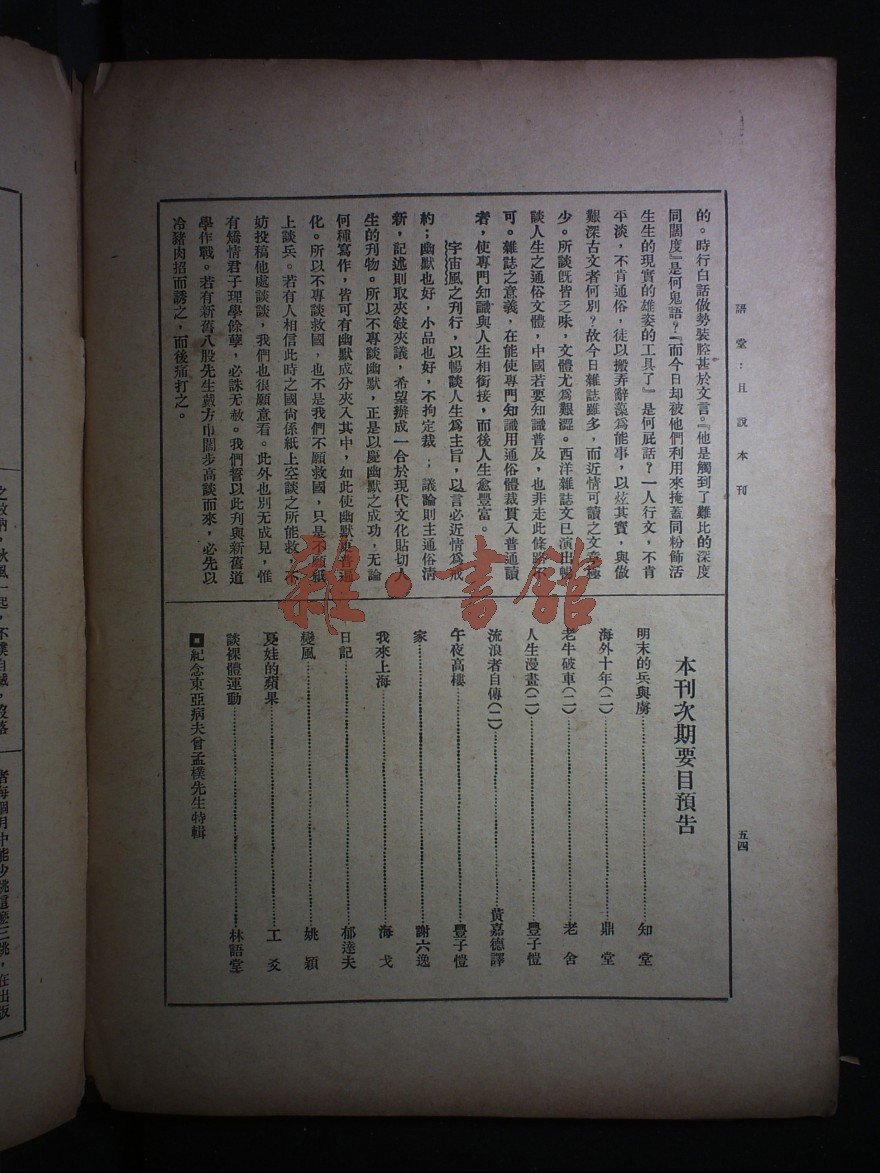 語堂：且說本刊
五四
的。時行白話做勢裝腔甚於文言。『他是觸到了難比的深度
同闊度』是何鬼語？『而今日却被他們利用來掩蓋同粉飾活
生生的現實的雄姿的工具了』是何屁話？一人行文，不肯
平淡，不肯通俗，徒以搬弄辭藻爲能事，以炫其實，與做
艱深古文者何別？故今日雜誌雖多，而近情可讀之文章極
少。所談旣皆乏味，文體尤爲艱澀。西洋雜誌文已演出暢
談人生之通俗文體，中國若要知識普及，也非走此條路不
可。雜誌之意義，在能使專門知識用通俗體裁貫入普通讀
者，使專門知識與人生相銜接，而後人生愈豐富。
宇宙風之刊行，以暢談人生爲主旨，以言必近情爲戒
約；幽默也好，小品也好，不拘定裁；議論則主通俗淸
新，記述則取夾敍夾議，希望辦成一合於現代文化貼切人
生的刊物。所以不專談幽默，正是以慶幽默之成功，无論
何種寫作，皆可有幽默成分夾入其中，如此使幽默更普遍
化。所以不專談救國，也不是我們不願救國，只是不願紙
上談兵。若有人相信此時之國尙係紙上空談之所能救，不
妨投稿他處談談，我們也很願意看。此外也別无成見，惟
有矯情君子理學餘孽，必誅无赦。我們誓以此刊與新舊道
學作戰。若有新舊八股先生戴方巾闊步高談而來，必先以
冷豬肉招而誘之，而後痛打之。
本刊次期要目預吿
明末的兵與虜……知堂
海外十年（二）……鼎堂
老牛破車（二）……老舍
人生漫畫（二）……豐子愷
流浪者自傳（二）……黃嘉德譯
午夜高樓……豐子愷
家……謝六逸
我來上海……海戈
日記……郁達夫
變風……姚穎
夏娃的蘋果……工爻
談裸體運動……林語堂
◘紀念東亞病夫曾孟樸先生特輯
雜·書館